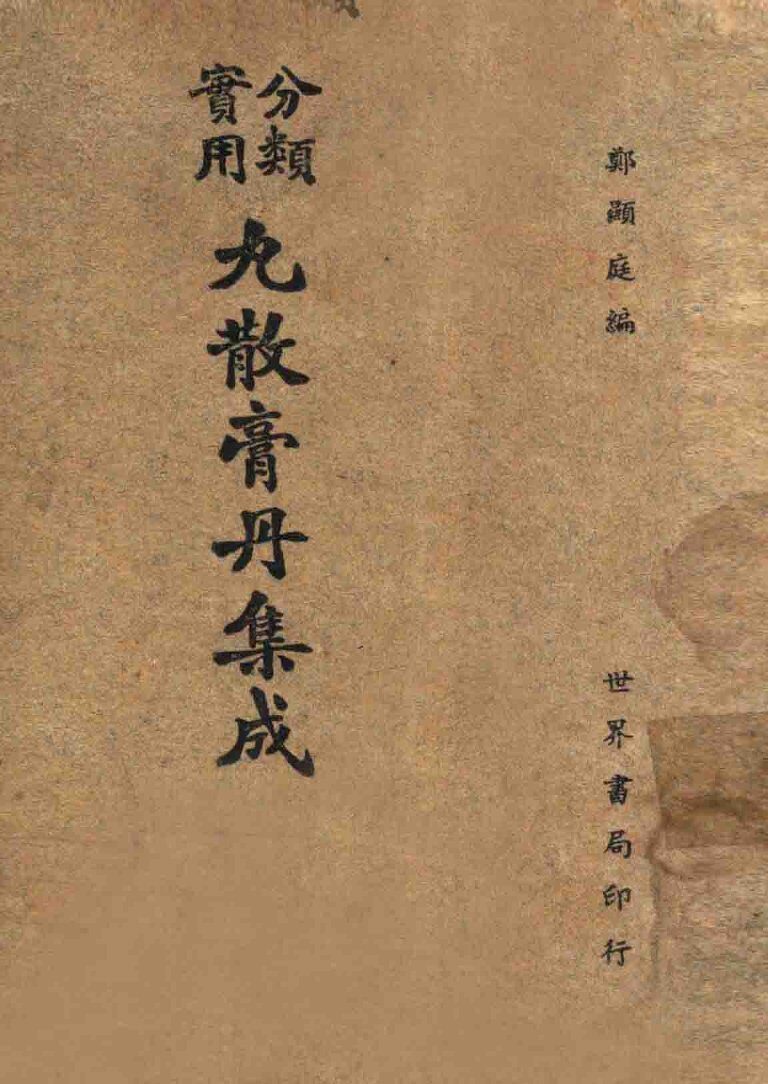 鄭顯庭編
世界書局印行
分類
實用
丸散膏丹集成